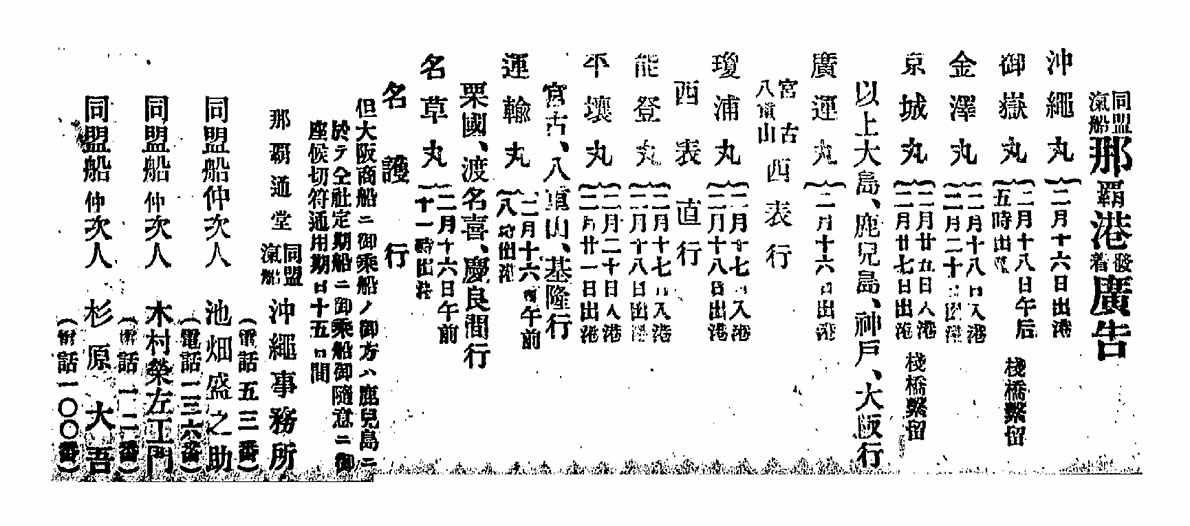 同盟汽船那覇港發着廣告
沖繩丸{二月十六日出港
御嶽丸{二月十八日午后五時出港 棧橋繫留
金澤丸{二月十八日入港二月二十日出港
京城丸{二月廿五日入港二月廿七日出港 棧橋繫留
以上大島、鹿兒島、神戶、大阪行
廣運丸{二月十六日出港
宮古八重山西表行
瓊浦丸{二月十七日入港二月十八日出港
西表直行
能登丸{二月十七日入港二月十八日出港
平壤丸{二月二十日入港二月廿一日出港
宮古、八重山、基隆行
運輸丸{二月十六日午前八時出港
粟國、渡名喜、慶良間行
名草丸{二月十六日午前十一時出港
名護行
但大阪商船ニ御乘船ノ御方ハ鹿兒島ニ
於テ仝社定期船ニ御乘船御隨意ニ御
座候切符通用期日十五日間
那覇通堂 同盟汽船 沖繩事務所
(電話五三番)
同盟船仲次人 池畑盛之助
(電話二三六番)
同盟船仲次人 木村榮左工門
(電話一二番)
同盟船仲次人 杉原大吾
(電話一〇〇番)